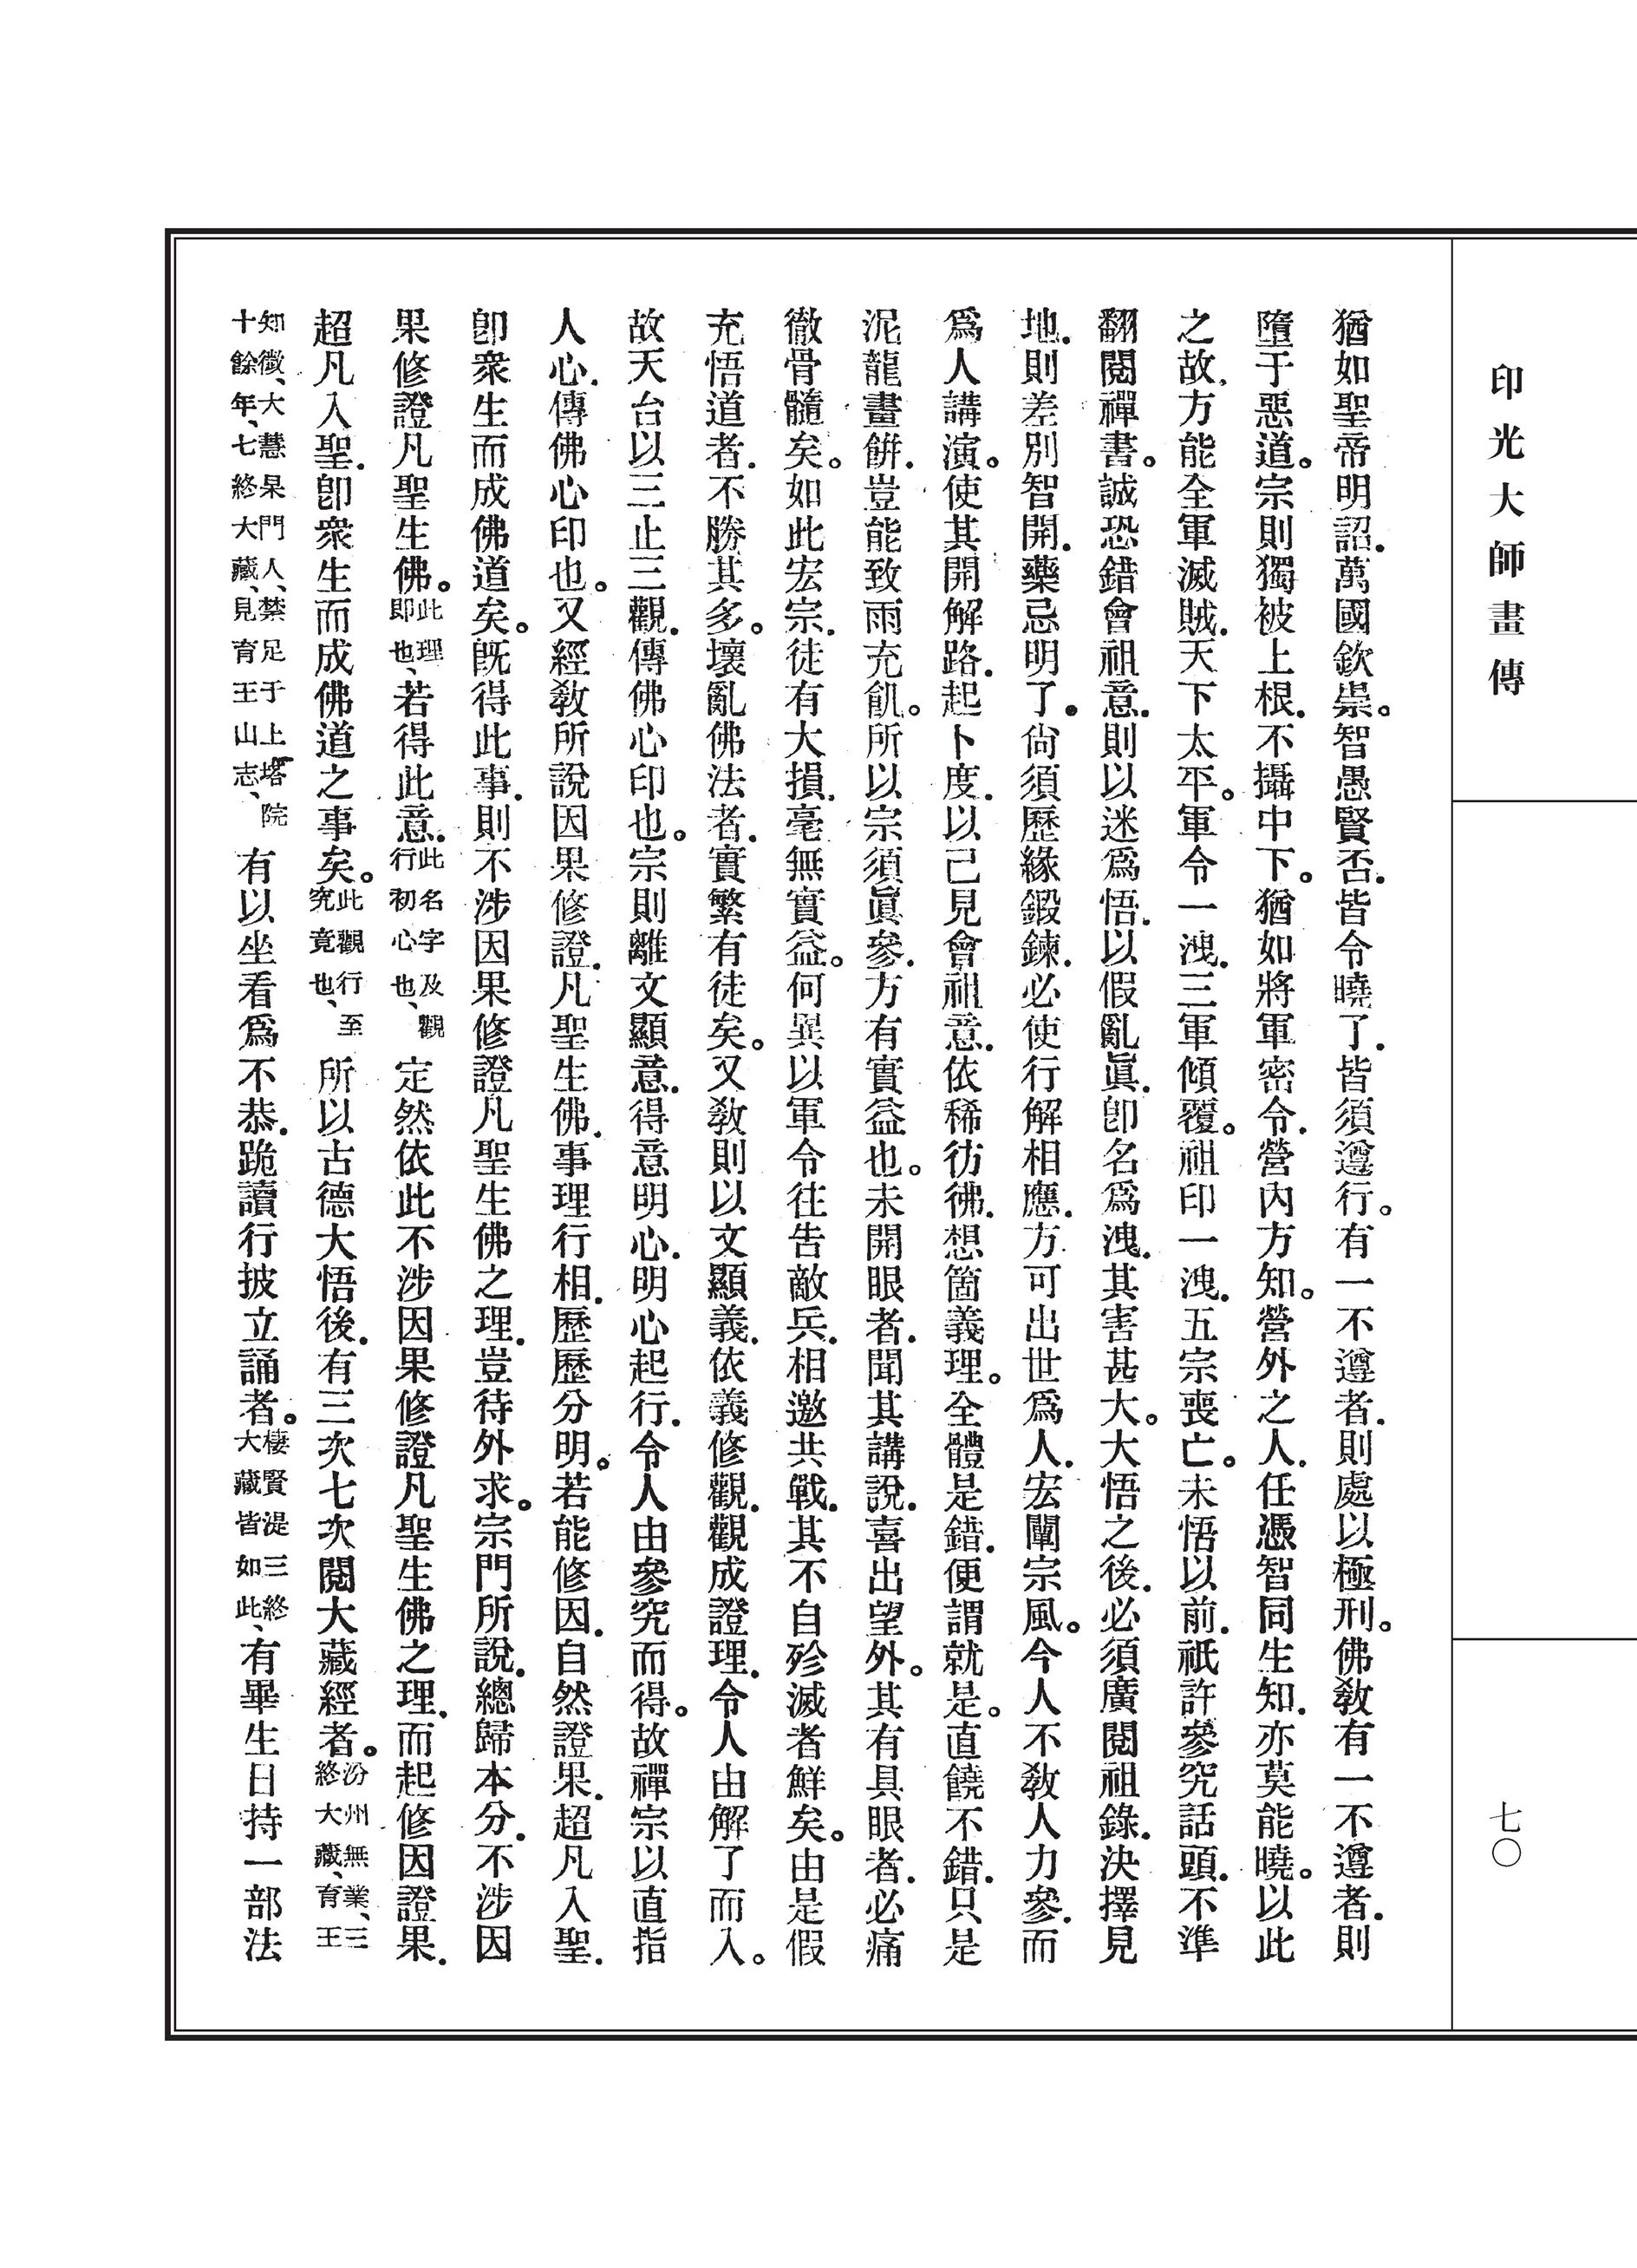 印光大師畫傳
七〇
猶如聖帝明詔.萬國欽崇。智愚賢否.皆令曉了.皆須遵行。有一不遵者.則處以極刑。佛敎有一不遵者.則
墮于惡道。宗則獨被上根.不攝中下。猶如將軍密令.營內方知。營外之人.任憑智同生知.亦莫能曉。以此
之故.方能全軍滅賊.天下太平。軍令一洩.三軍傾覆。祖印一洩.五宗喪亡。未悟以前.祇許參究話頭.不準
翻閱禪書。誠恐錯會祖意.則以迷爲悟.以假亂眞.卽名爲洩.其害甚大。大悟之後.必須廣閱祖錄.決擇見
地.則差別智開.藥忌明了。尙須歷緣鍛鍊.必使行解相應.方可出世爲人.宏闡宗風。今人不敎人力參.而
爲人講演。使其開解路.起卜度.以己見會祖意.依稀彷彿.想箇義理。全體是錯.便謂就是。直饒不錯.只是
泥龍畫餠.豈能致雨充飢。所以宗須眞參.方有實益也。未開眼者.聞其講說.喜出望外。其有具眼者.必痛
徹骨髓矣。如此宏宗.徒有大損.毫無實益。何異以軍令往告敵兵.相邀共戰.其不自殄滅者鮮矣。由是假
充悟道者.不勝其多。壞亂佛法者.實繁有徒矣。又敎則以文顯義.依義修觀.觀成證理.令人由解了而入。
故天台以三止三觀.傳佛心印也。宗則離文顯意.得意明心.明心起行.令人由參究而得。故禪宗以直指
人心.傳佛心印也。又經敎所說因果修證.凡聖生佛.事理行相.歷歷分明。若能修因.自然證果.超凡入聖.
卽衆生而成佛道矣。旣得此事.則不涉因果修證凡聖生佛之理.豈待外求。宗門所說.總歸本分.不涉因
果修證凡聖生佛。此理卽也、若得此意.此名字及觀行初心也、定然依此不涉因果修證凡聖生佛之理.而起修因證果.
超凡入聖.卽衆生而成佛道之事矣。此觀行至究竟也、所以古德大悟後.有三次七次閱大藏經者。汾州無業、三終大藏、育王
知微、大慧杲門人、禁足于上塔院十餘年、七終大藏、見育王山志、有以坐看爲不恭.跪讀行披立誦者。棲賢湜三終大藏皆如此、有畢生日持一部法